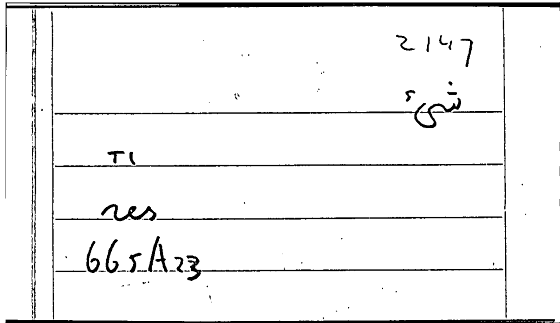 2147
شيء
TI
res
665A23